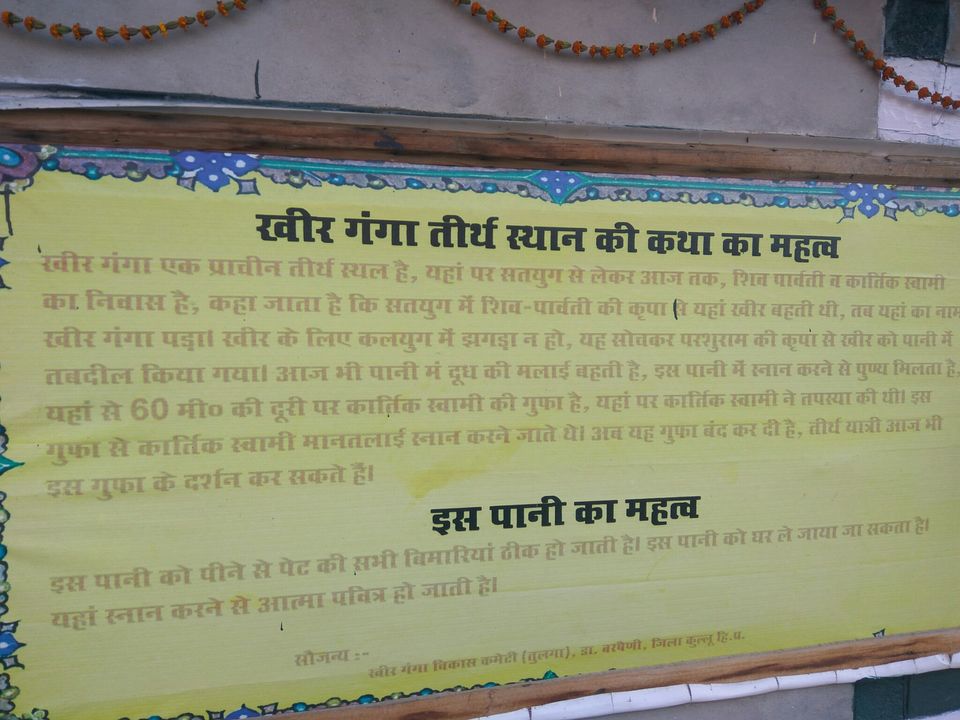 खीर गंगा तीर्थ स्थान की कथा का महत्व
खीर गंगा एक प्राचीन तीर्थ स्थल है, यहां पर सतयुग से लेकर आज तक, शिव पार्वती व कार्तिक स्वामी
का निवास है, कहा जाता है कि सतयुग में शिव-पार्वती की कृपा से यहां खीर बहती थी, तब यहां का नाम
खीर गंगा पड़ा। खीर के लिए कलयुग में झगड़ा न हो, यह सोचकर परशुराम की कृपा से खीर को पानी में
तबदील किया गया। आज भी पानी मं दूध की मलाई बहती है, इस पानी में स्नान करने से पुण्य मिलता है,
यहां से 60 मी० की दूरी पर कार्तिक स्वामी की गुफा है, यहां पर कार्तिक स्वामी ने तपस्या की थी। इस
गुफा से कार्तिक स्वामी मानतलाई स्नान करने जाते थे। अब यह गुफा बंद कर दी है, तीर्थ यात्री आज भी
इस गुफा के दर्शन कर सकते हैं।
इस पानी का महत्व
इस पानी को पीने से पेट की सभी बिमारियां ठीक हो जाती है। इस पानी को घर ले जाया जा सकता है।
यहां स्नान करने से आत्मा पवित्र हो जाती है।
सौजन्य :-
खीर गंगा विकास कमेटी (तुलगा), डा. बरषैणी, जिला कुल्लू हि.प्र.